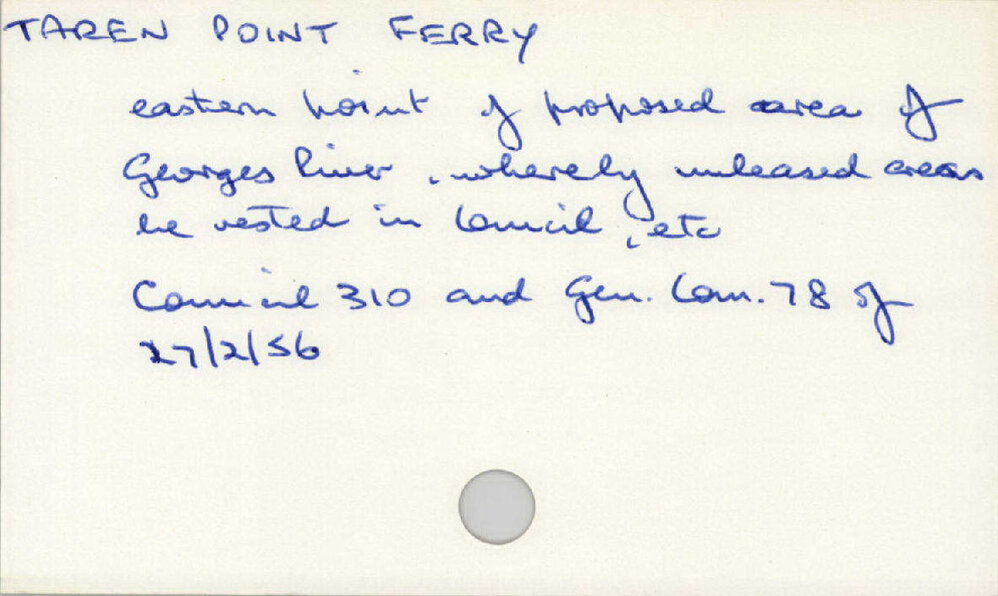 TAREN POINT FERRY
eastern point of proposed area of
Georges River, whereby unleased areas
be vested in Council, etc
Council 310 and Gen. Com. 78 of
27/2/56